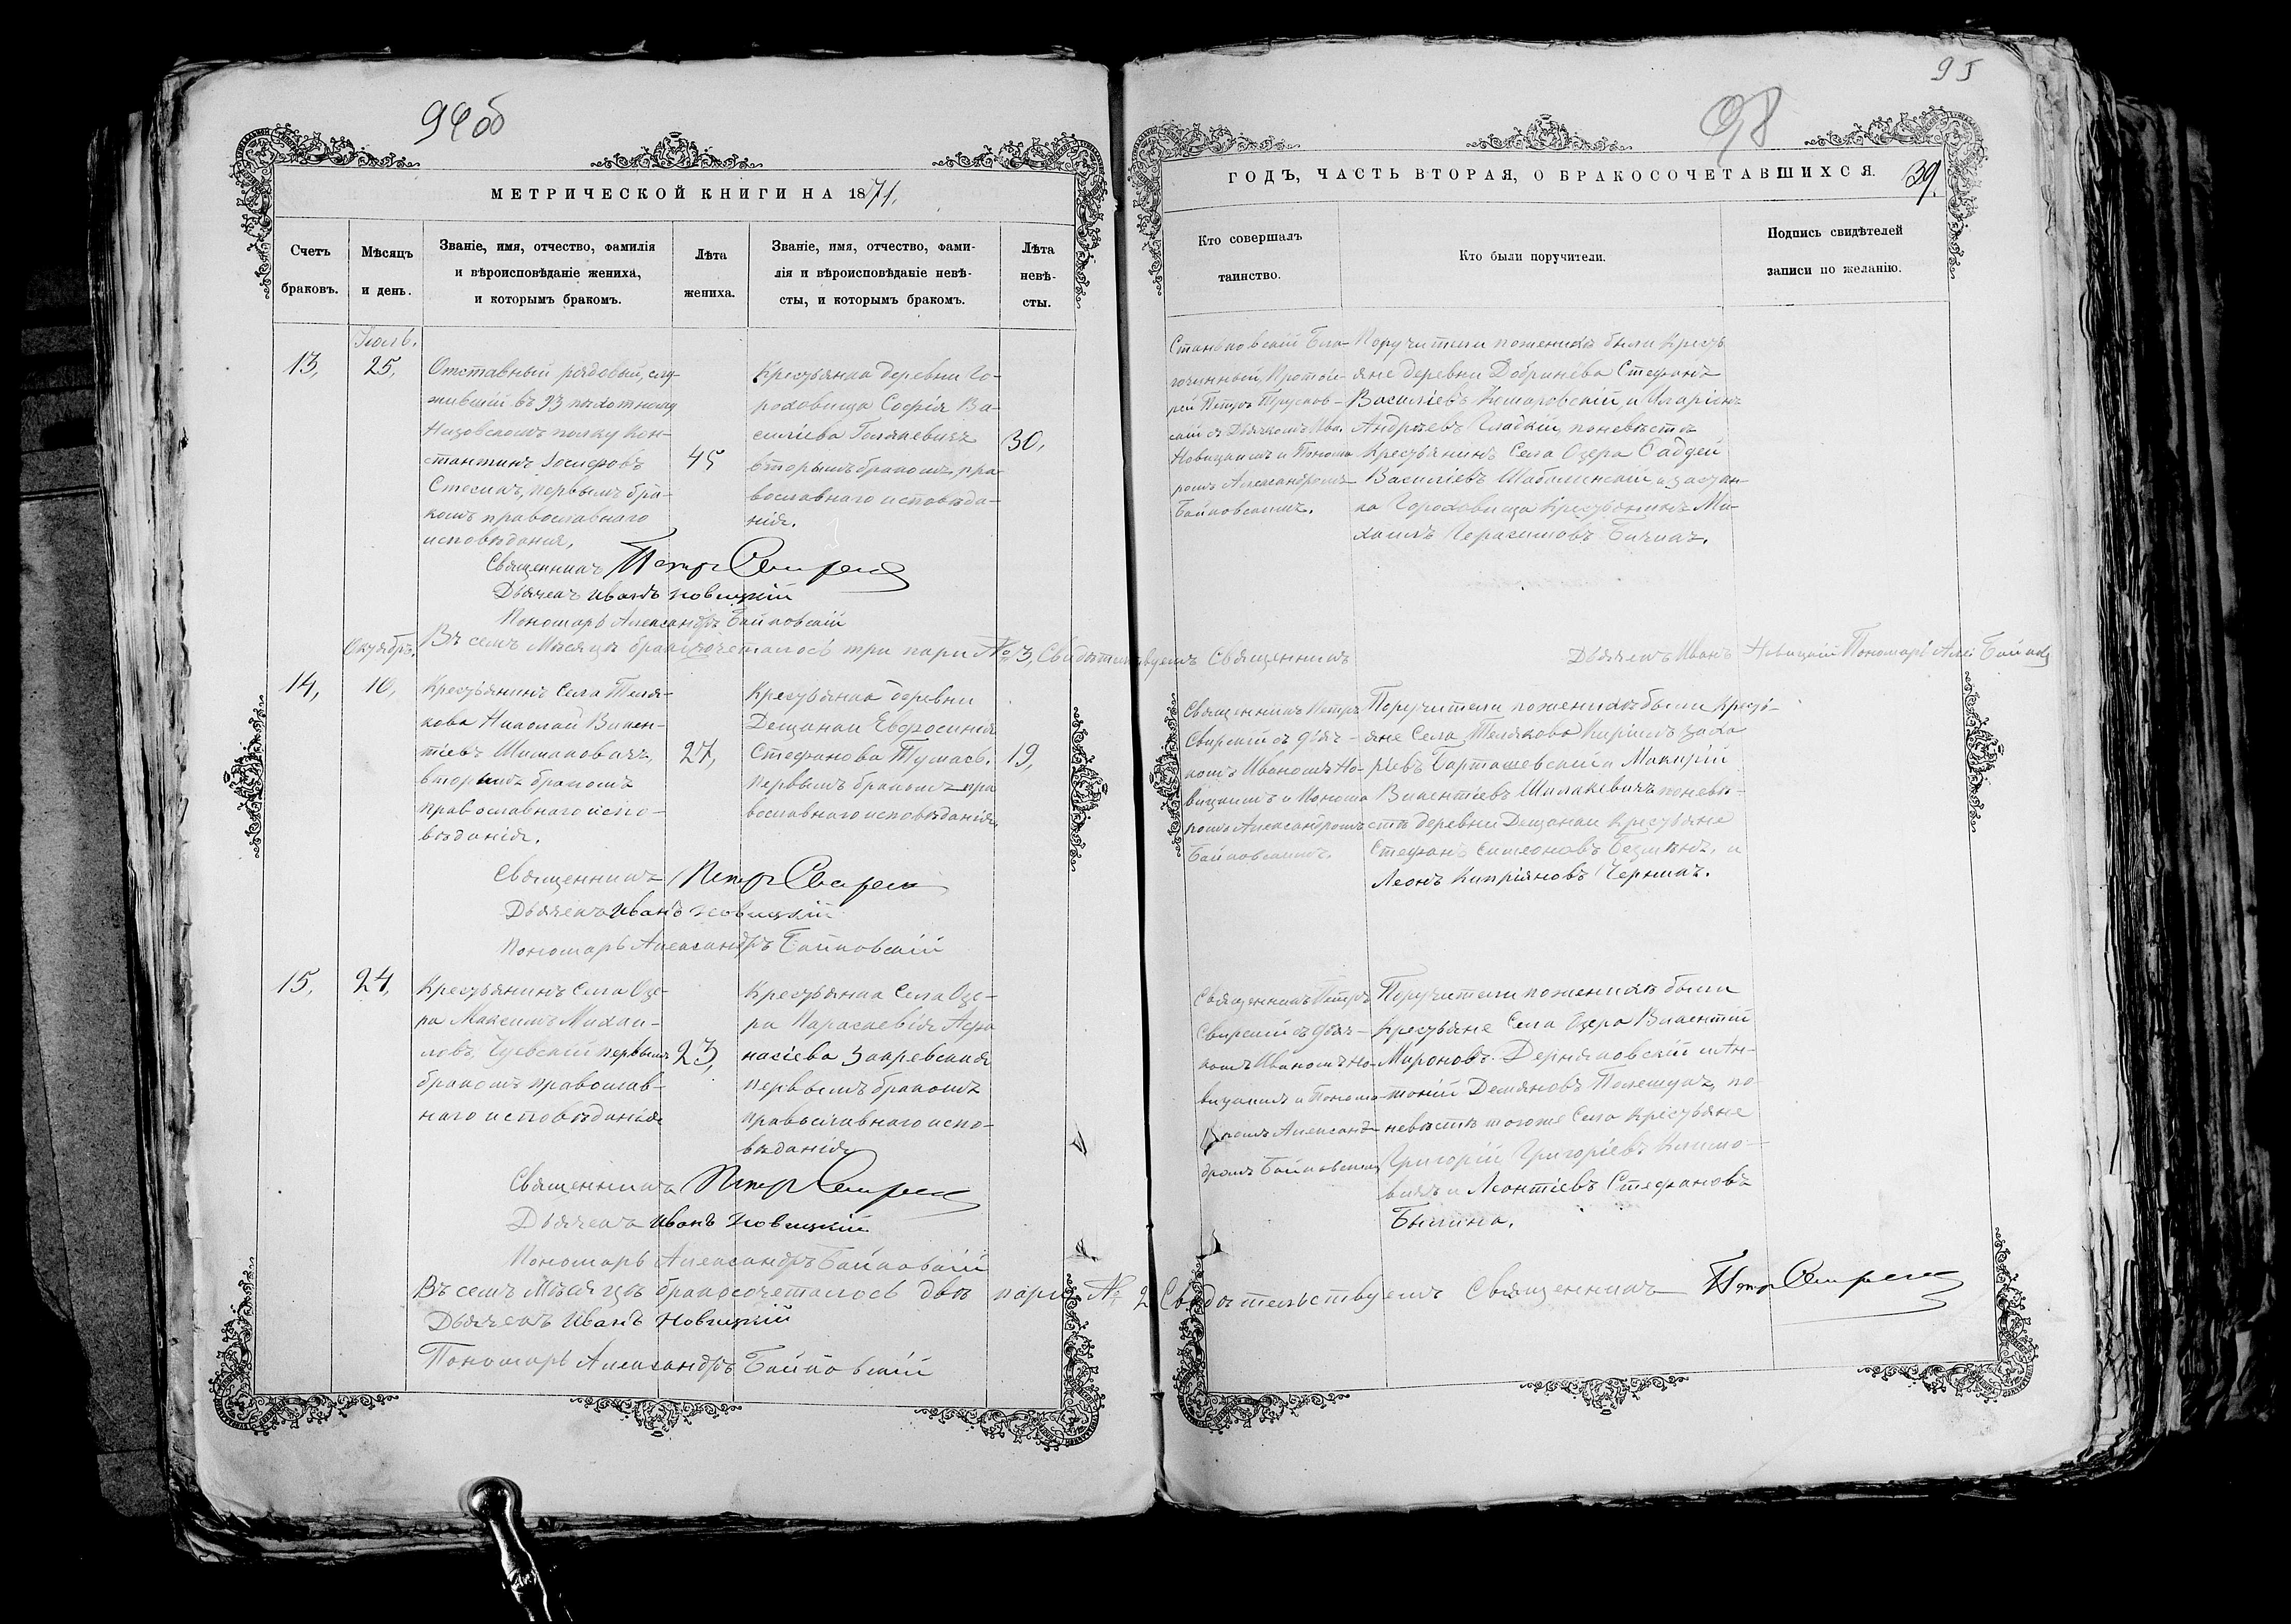 94об
МЕТРИЧЕСКОЙ КНИГИ НА 1871,
Счетъ браковъ.
Мѣсяцъ и день.
Званіе, имя, отчество, фамилія и вѣроисповѣданіе жениха, и которымъ бракомъ.
Лѣта жениха.
Званіе, имя, отчество, фами-
лія и вѣроисповѣданіе невѣ-
сты, и которымъ бракомъ.
Лѣта невѣ-
сты.
Іюль.
13, 25,
Отставный рядовый, слу-
жившій въ 93 пѣхотномъ
полку Кон-
стантинъ Іосифовъ
первымъ бра-
комъ православнаго
исповѣданія,
45
Крестьянка деревни Го-
роховища Софія Ва-
силіева
вторымъ бракомъ, пра-
вославнаго исповѣда-
нія.
30,
Священникъ Петръ Свирскій
Дьячекъ Иванъ Новицкій
Пономарь Александръ Байковскій
Въ семъ Мѣсяцѣ бракосочеталось три пари № 3, Свидѣтельствуемъ Священникъ
Дьячекъ Иванъ Новицкій Пономарь Алек:
Октябрь.
14, 10,
Крестьянинъ Села Теля-
кова Николай Викен-
тіевъ
вторымъ бракомъ
православнаго испо-
вѣданія.
27,
Крестьянка деревни
Дещанки Евфросинія
Стефанова
первымъ бракомъ пра
вославнаго исповѣданія,
19,
Священникъ Петръ Свирскій
Дьячекъ Иванъ Новицкій
Пономарь Александръ Байковскій
15, 24,
Крестьянинъ Села Озе-
ра Максимъ Михаи-
ловъ, первымъ
бракомъ православ-
наго исповѣданія
23,
Крестьянка Села Озе-
ра Параскевія Афа
насіева Закревская
первымъ бракомъ
православнаго испо-
вѣданія
Священникъ Петръ Свирскій
Дьячекъ Иванъ Новицкій
Пономарь Александръ Байковскій
Въ семъ Мѣсяцѣ бракосочеталось двѣ пари № 2 Свидѣтельствуемъ Священникъ Петръ Свирскій
Дьячекъ Иванъ Новицкій
Пономарь Александръ Байковскій
95
98
ГОДЪ, ЧАСТЬ ВТОРАЯ, О БРАКОСОЧЕТАВШИХСЯ.
39.
Кто совершалъ таинство.
Кто были поручители.
Подпись свидѣтелей записи по желанію.
Станьковскій Бла-
гочинный, Протоіе-
рей Петръ
скій съ Дьячкомъ Ив.
Новицкимъ и Понома
ромъ Александромъ
Байковскимъ.
Поручители по женихѣ были Кресть
яне деревни Добринева Стефанъ
Василіевъ Комаровскій, и Иларіонъ
Андреевъ Гладкій, по невѣстѣ
Крестьянинъ Села Озера Фаддей
Василіевъ
ка Гороховища Крестьянинъ Ми-
хаилъ Герасимовъ
Священникъ Петръ
Свирскій съ дьяч-
комъ Иваномъ Но-
вицкимъ и Понома
ромъ Александромъ
Байковскимъ.
Поручители по женихѣ были Кресть-
яне Села Телякова Кирилъ Заха
ріевъ Барташевскій и Макарій
Викентіевъ по невѣ-
стѣ деревни Дещанки Крестьяне
Стефанъ Симеоновъ и
Леонъ Кипріяновъ Чернякъ.
Священникъ Петръ
Свирскій съ дьяч-
комъ Иваномъ Но-
вицкимъ и Понома-
ромъ Алексан-
дромъ Байковскимъ
Поручители по женихѣ были
Крестьяне Села Озера Викентій
Мироновъ и Ан-
тоній Демяновъ Полещукъ, по
невѣстѣ тогоже Села Крестьяне
Григорій Григоріевъ Климо-
вичъ и Леонтіевъ Стефановъ
Былина.